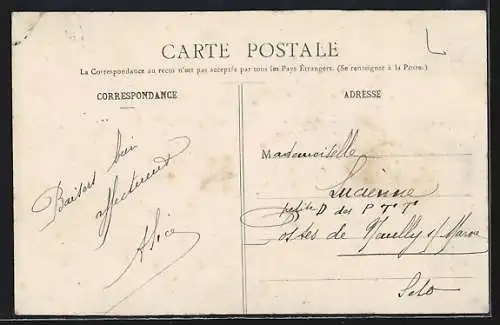 CARTE POSTALE
La Correspondance au recto n'est pas acceptée par tous les Pays Étrangers. (Se renseigner à la Poste.)
CORRESPONDANCE
ADRESSE
Baisers bien
affectueux
Alice
Mademoiselle
Lucienne
petite D des P T T
Postes de Neuilly s/ Marne